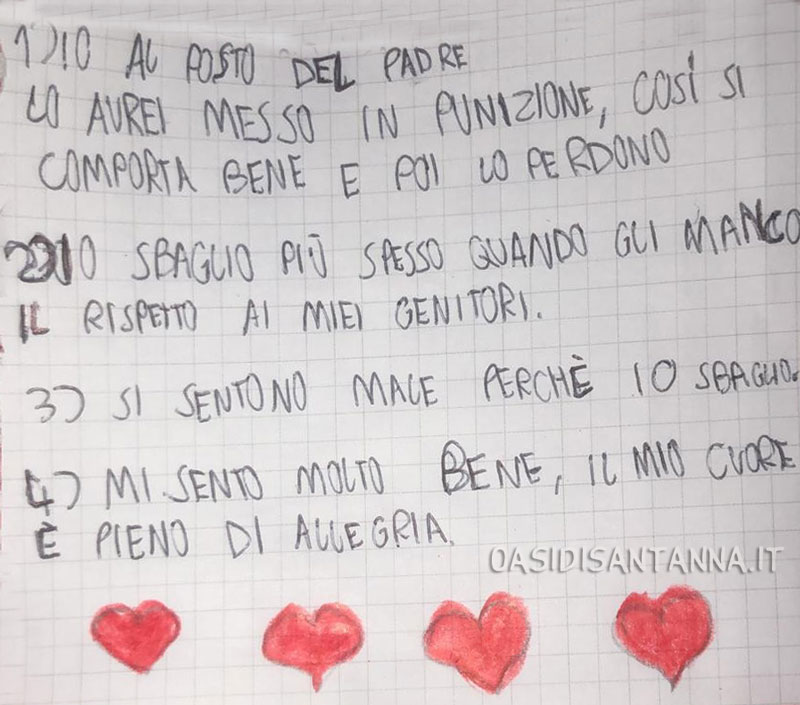 1) IO AL POSTO DEL PADRE
LO AUREI MESSO IN PUNIZIONE, COSÍ SI
COMPORTA BENE E POI LO PERDONO
2) IO SBAGLIO PIÙ SPESSO QUANDO GLI MANCO
IL RISPETTO AI MIEI GENITORI.
3) SI SENTONO MALE PERCHÈ IO SBAGLIO.
4) MI SENTO MOLTO BENE, IL MIO CUORE
È PIENO DI ALLEGRIA.
OASIDISANTANNA.IT